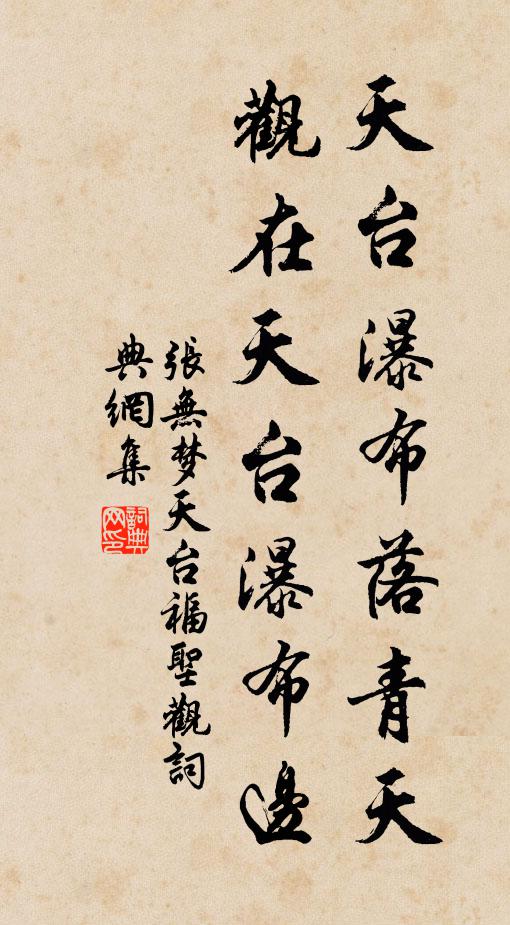 天台瀑布落青天
觀在天台瀑布邊
張無梦天台福聖觀詞
典網集
詞典网印